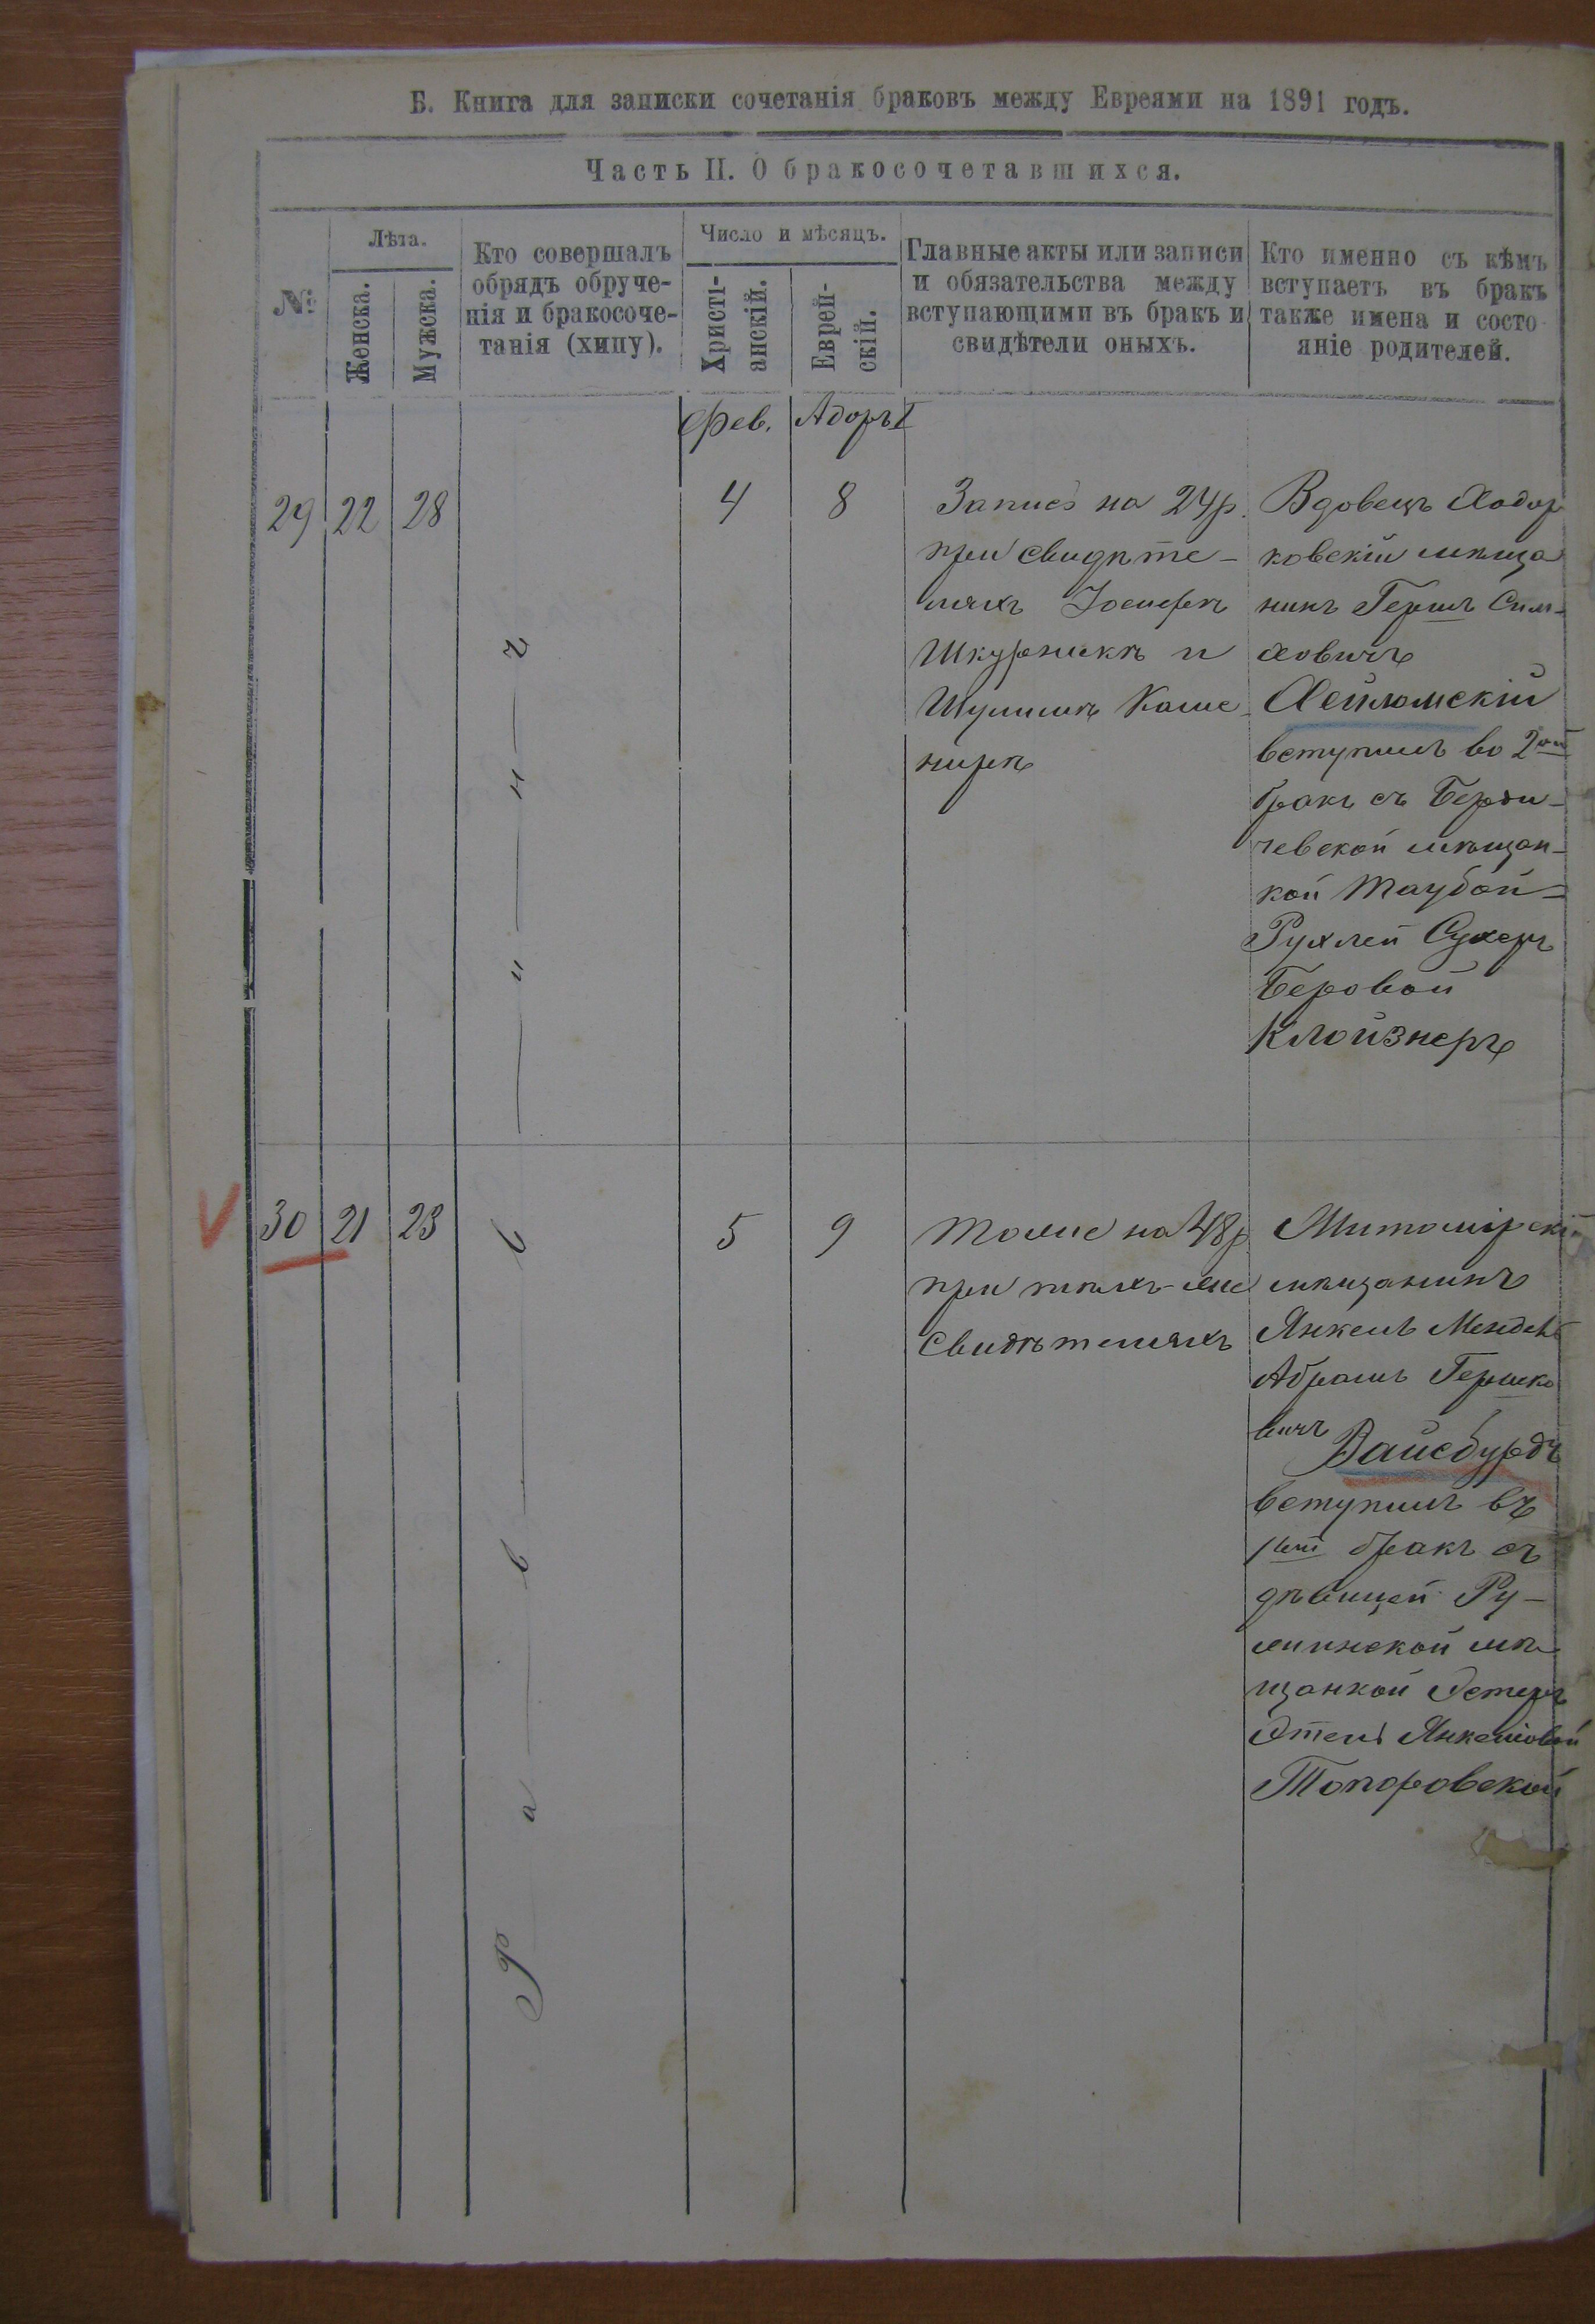 Б. Книга для записки сочетанія браковъ между Евреями на 1891 годъ.
Часть II. О бракосочетавшихся.
№
Лѣта.
Женска.
Мужска.
Кто совершалъ
обрядъ обруче-
нія и бракосоче-
танія (хипу).
Число и мѣсяцъ.
Христі-
анскій.
Еврей-
скій.
Главные акты или записи
и обязательства между
вступающими въ бракъ и
свидѣтели оныхъ.
Кто именно съ кѣмъ
вступаетъ въ бракъ
также имена и состо
яніе родителей.
Фев.
Адоръ I
29
22
28
4
8
Запись на 24 р.
при свидѣте-
ляхъ Іосифѣ
Шкурникѣ и
Шулимѣ Каме-
нирѣ
Вдовецъ Ходор
ковскій мѣща
нинъ Гершъ Сим-
ховичъ
Хейломскій
вступилъ во 2ой
бракъ съ Берди-
чевской мѣщан-
кой Таубой-
Рухлей Сухеръ
Беровой
Клойзнеръ
30
21
23
5
9
Тоже на 48 р
при тѣхъ-же
свидѣтеляхъ
Житомірскій
мѣщанинъ
Янкель Мендель
Абрамъ Гершко
вичъ
Вайсбурдъ
вступилъ въ
1ый бракъ съ
дѣвицей Ру-
жинской мѣ
щанкой Эстеръ
Этель Янкелiовой
Топоровской
Раввинъ